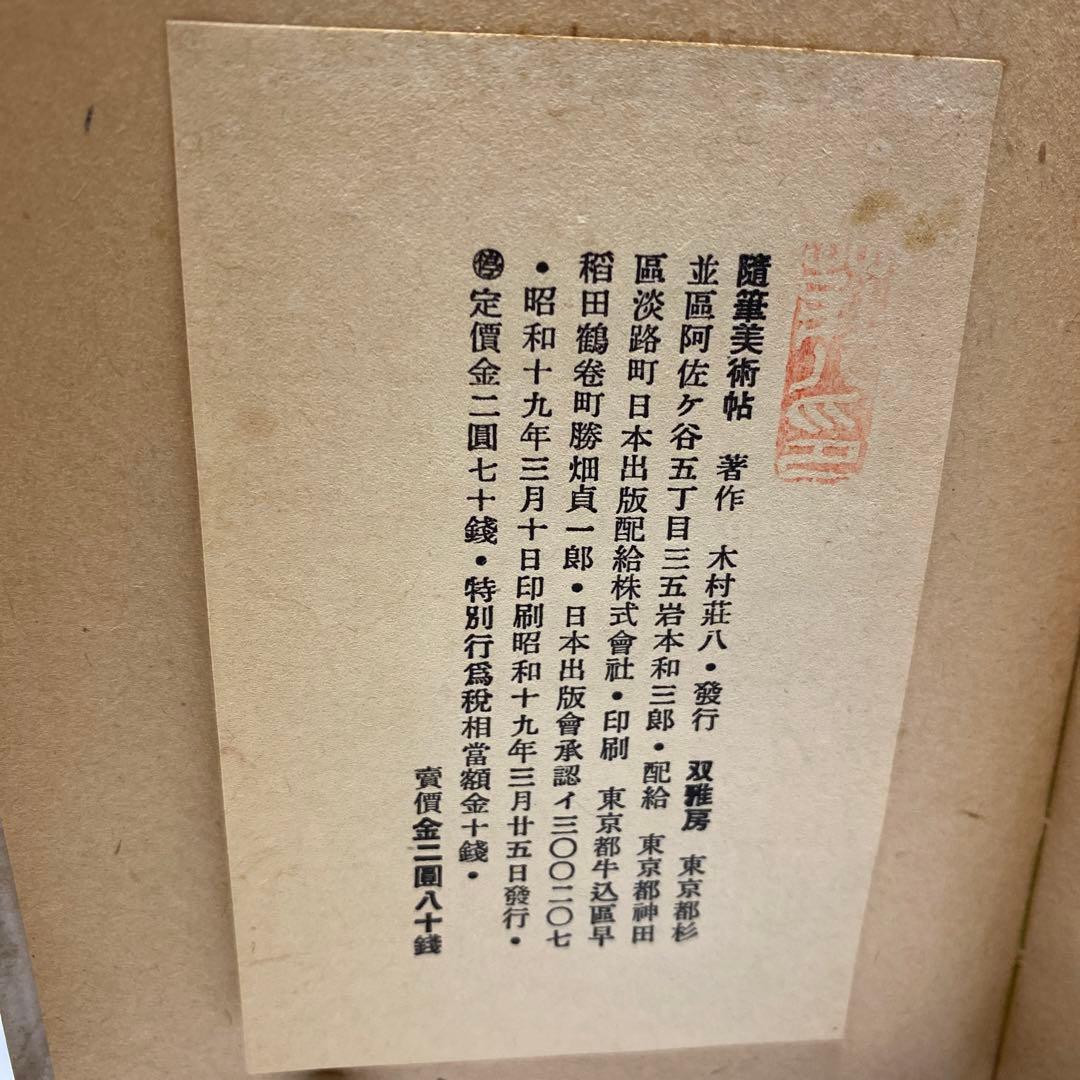 隨筆美術帖　著作　木村莊八・發行　双雅房　東京都杉
並區阿佐ケ谷五丁目三五岩本和三郎・配給　東京都神田
區淡路町日本出版配給株式會社・印刷　東京都牛込區早
稻田鶴卷町勝畑貞一郎・日本出版會承認イ三〇〇二〇七
・昭和十九年三月十日印刷昭和十九年三月廿五日發行・
㊡定價金二圓七十錢・特別行爲稅相當額金十錢・
賣價金二圓八十錢